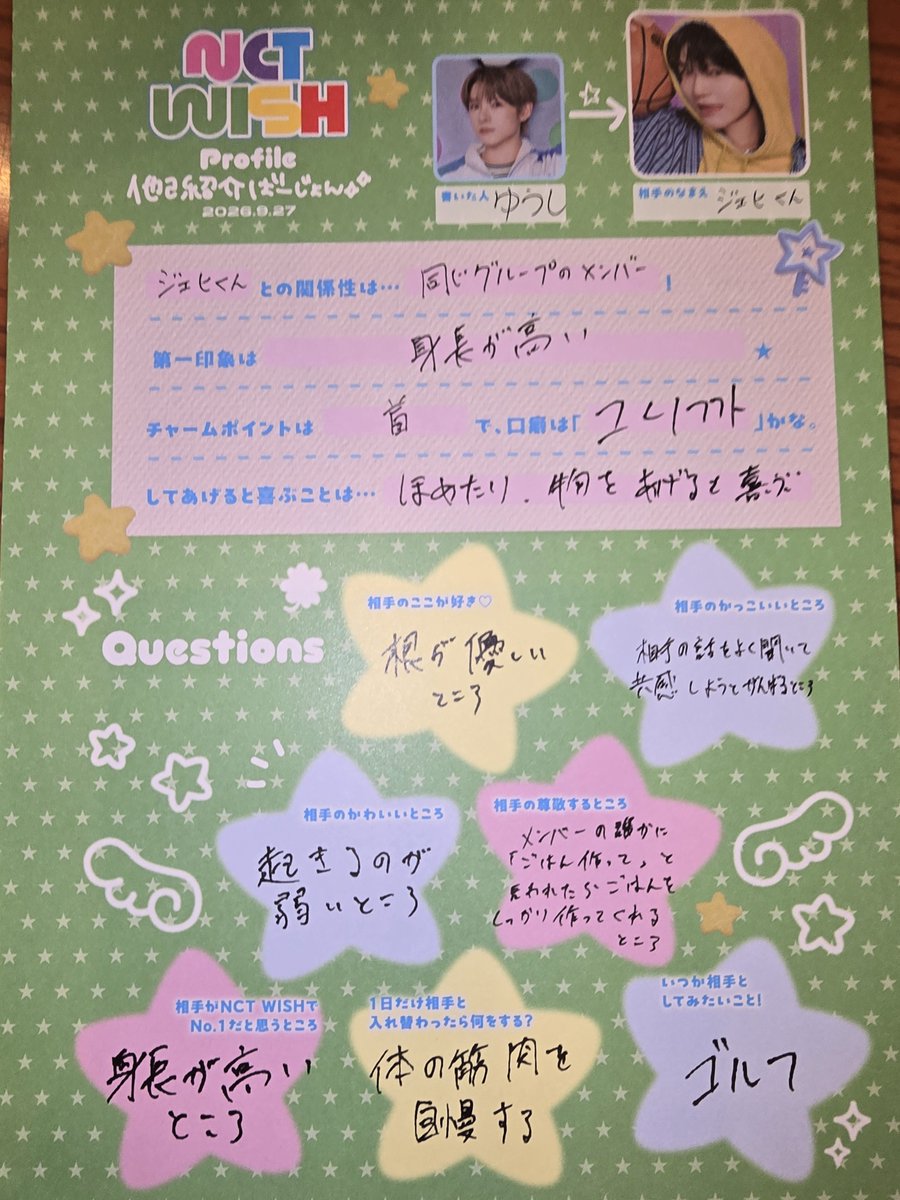 NCT
WISH
Profile
他己紹介ばーじょん
2026.9.27
書いた人 ゆうし
相手のなまえ ジェヒくん
ジェヒくん との関係性は… 同じグループのメンバー !
第一印象は 身長が高い ★
チャームポイントは 首 で、口癖は「 」かな。
してあげると喜ぶことは… ほめたり、物をあげると喜ぶ
Questions
相手のここが好き♡
根が優しい
ところ
相手のかっこいいところ
相手の話をよく聞いて
共感しようとがんばるところ
相手のかわいいところ
起きるのが
弱いところ
相手の尊敬するところ
メンバーの誰かに
「ごはん作って」と
言われたらごはんを
しっかり作ってくれる
ところ
相手がNCT WISHで
No.1だと思うところ
身長が高い
ところ
1日だけ相手と
入れ替わったら何をする?
体の筋肉を
自慢する
いつか相手と
してみたいこと!
ゴルフ